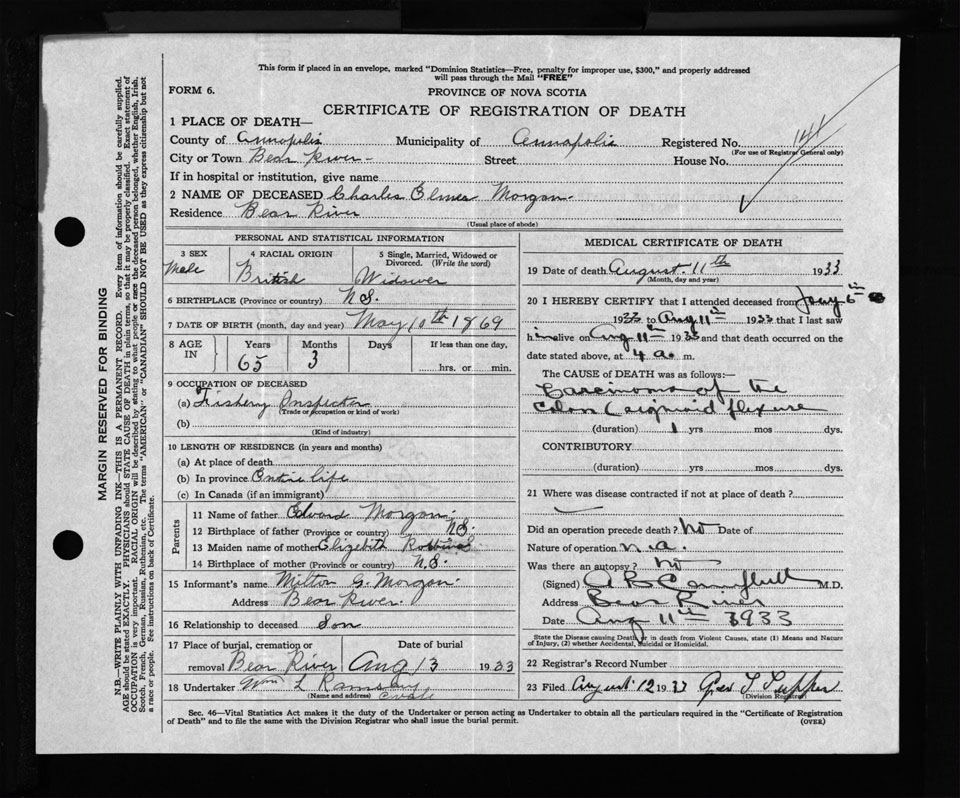 This form if placed in an envelope, marked "Dominion Statistics—Free, penalty for improper use, $300," and properly addressed
will pass through the Mail "FREE"
FORM 6.
PROVINCE OF NOVA SCOTIA
CERTIFICATE OF REGISTRATION OF DEATH
1 PLACE OF DEATH—
County of Annapolis Municipality of Annapolis Registered No. 141
(For use of Registrar General only)
City or Town Bear River - Street House No.
If in hospital or institution, give name
2 NAME OF DECEASED Charles Elmer Morgan
Residence Bear River
(Usual place of abode)
PERSONAL AND STATISTICAL INFORMATION
3 SEX 4 RACIAL ORIGIN 5 Single, Married, Widowed or
Divorced. (Write the word)
Male British Widower
6 BIRTHPLACE (Province or country) N.S.
7 DATE OF BIRTH (month, day and year) May 10th 1869
8 AGE IN Years Months Days If less than one day,
65 3 hrs. or min.
9 OCCUPATION OF DECEASED
(a) Fishery Inspector
(Trade or occupation or kind of work)
(b)
(Kind of industry)
10 LENGTH OF RESIDENCE (in years and months)
(a) At place of death
(b) In province Entire life
(c) In Canada (if an immigrant)
Parents
11 Name of father Edward Morgan
12 Birthplace of father (Province or country) N.S.
13 Maiden name of mother Elizebith
14 Birthplace of mother (Province or country) N.S.
15 Informant's name Milton G. Morgan
Address Bear River.
16 Relationship to deceased Son
17 Place of burial, cremation or Date of burial
removal Bear River Aug 13 1933
18 Undertaker Wm L Ramsay
(Name and address)
MEDICAL CERTIFICATE OF DEATH
19 Date of death August 11th 1933
(Month, day and year)
20 I HEREBY CERTIFY that I attended deceased from 6th
1933 to Aug 11th 1933 that I last saw
him alive on Aug 11th 1933 and that death occurred on the
date stated above, at 4 a. m.
The CAUSE OF DEATH was as follows:—
Carcinoma of the
Colon (sigmoid flexure
(duration) 1 yrs mos dys.
CONTRIBUTORY
(duration) yrs mos dys.
21 Where was disease contracted if not at place of death?
Did an operation precede death? No Date of
Nature of operation n.a.
Was there an autopsy? No
(Signed) A B Campbell M.D.
Address Bear River
Date Aug 11th 1933
State the Disease causing Death, or in death from Violent Causes, state (1) Means and Nature
of Injury, (2) whether Accidental, Suicidal or Homicidal.
22 Registrar's Record Number
23 Filed August 12 1933 Tupper
(Division Registrar)
Sec. 46—Vital Statistics Act makes it the duty of the Undertaker or person acting as Undertaker to obtain all the particulars required in the "Certificate of Registration
of Death" and to file the same with the Division Registrar who shall issue the burial permit.
(OVER)
MARGIN RESERVED FOR BINDING
N.B.—WRITE PLAINLY WITH UNFADING INK—THIS IS A PERMANENT RECORD. Every item of information should be carefully supplied.
AGE should be stated EXACTLY. PHYSICIANS should STATE CAUSE OF DEATH in plain terms, so that it may be properly classified. Exact statement of
OCCUPATION is very important. RACIAL ORIGIN will be described by stating to what people or race the deceased person belonged, whether English, Irish,
Scotch, French, German, Russian, Ruthenian, etc. The terms "AMERICAN" or "CANADIAN" SHOULD NOT BE USED as they express citizenship but not
a race or people. See instructions on back of Certificate.